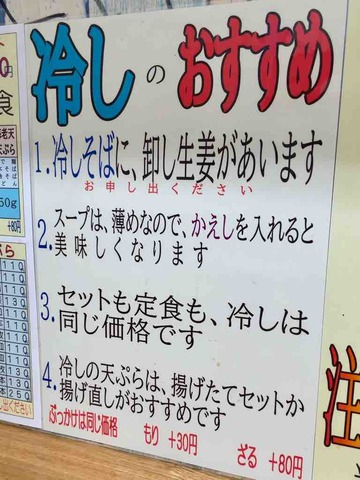 冷しのおすすめ
1.冷しそばに、卸し生姜があいます
お申し出ください
2.スープは、薄めなので、かえしを入れると
美味しくなります
3.セットも定食も、冷しは
同じ価格です
4.冷しの天ぷらは、揚げたてセットか
揚げ直しがおすすめです
ぶっかけは同じ価格 もり +30円 ざる +80円
円
食
老天
ぷら
50g
+80円
ぷら
110
110
110
130
し出ください
注